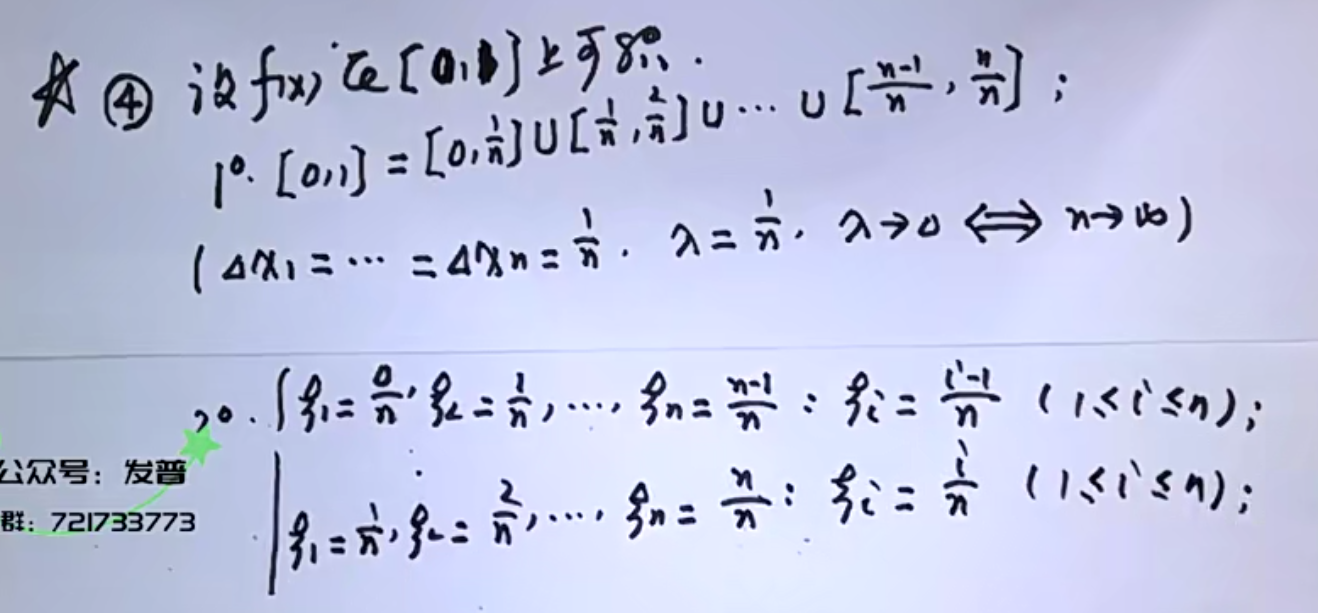 ☆ ④ 设f(x)在[0,1]上可积.
1°. [0,1] = [0, 1/n] ∪ [1/n, 2/n] ∪ ⋯ ∪ [n-1/n, n/n];
(Δx₁ = ⋯ = Δxn = 1/n. λ = 1/n. λ→0 ⟺ n→∞)
2°. ξ₁ = 0/n, ξ₂ = 1/n, ⋯, ξn = n-1/n : ξi = i-1/n (1≤i≤n);
公众号：发普
ξ₁ = 1/n, ξ₂ = 2/n, ⋯, ξn = n/n : ξi = i/n (1≤i≤n);
群：721733773